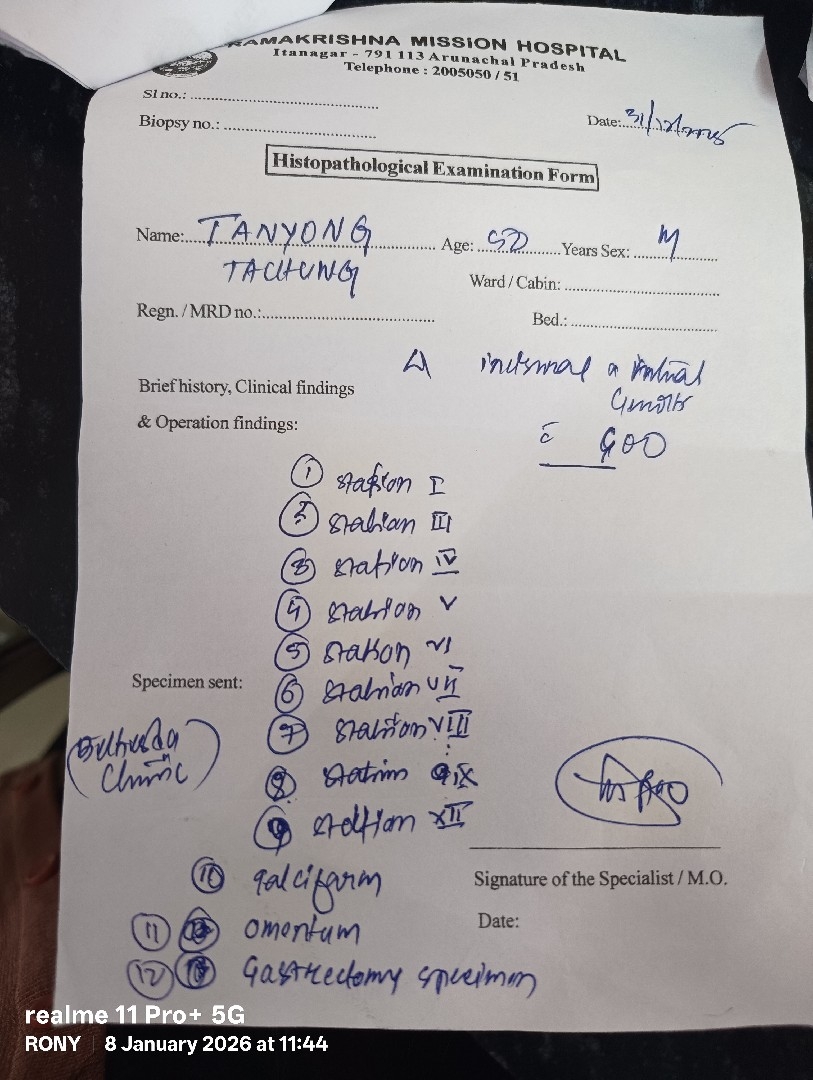 RAMAKRISHNA MISSION HOSPITAL
Itanagar - 791 113 Arunachal Pradesh
Telephone : 2005050 / 51
Sl no.:
Date: 31/12/2025
Biopsy no.:
Histopathological Examination Form
Name: TANYONG Age: 52 Years Sex: M
TACHUNG
Ward / Cabin:
Regn. / MRD no.:
Bed.:
Brief history, Clinical findings
& Operation findings:
c̄ GOO
① station I
② station III
③ station IV
④ station V
⑤ station VI
Specimen sent:
⑥ station VII
⑦ station VIII
Clinic
⑧ station IX
⑨ station XII
⑩ falciform
Signature of the Specialist / M.O.
⑪ omentum
Date:
⑫ Gastrectomy specimen
realme 11 Pro+ 5G
RONY | 8 January 2026 at 11:44